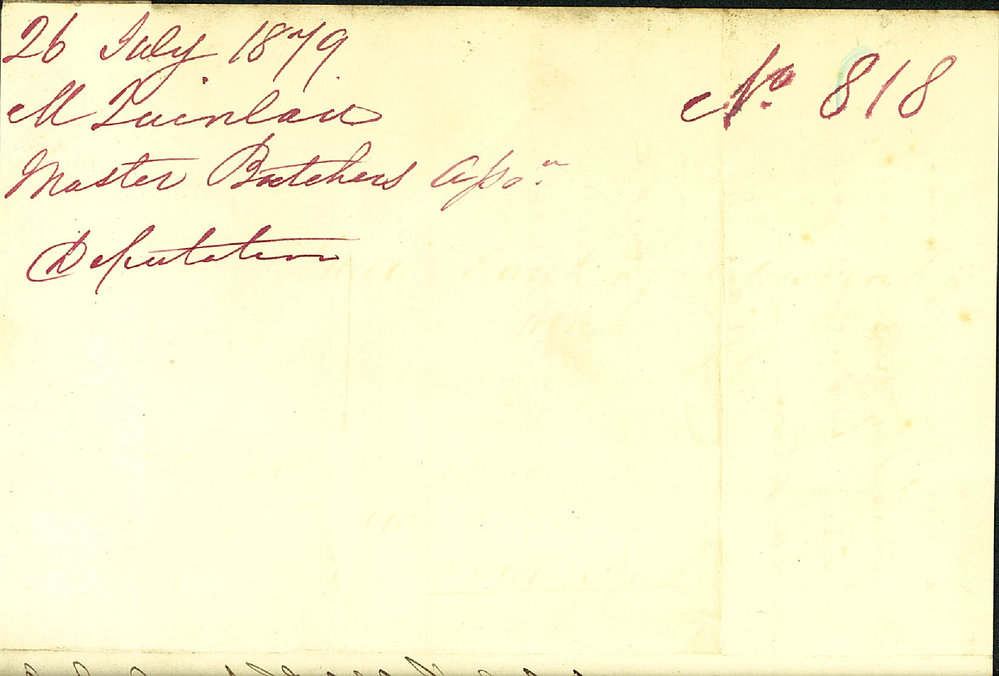 26 July 1879
No. 818
M Quinlan
Master Butchers Asson
Deputation